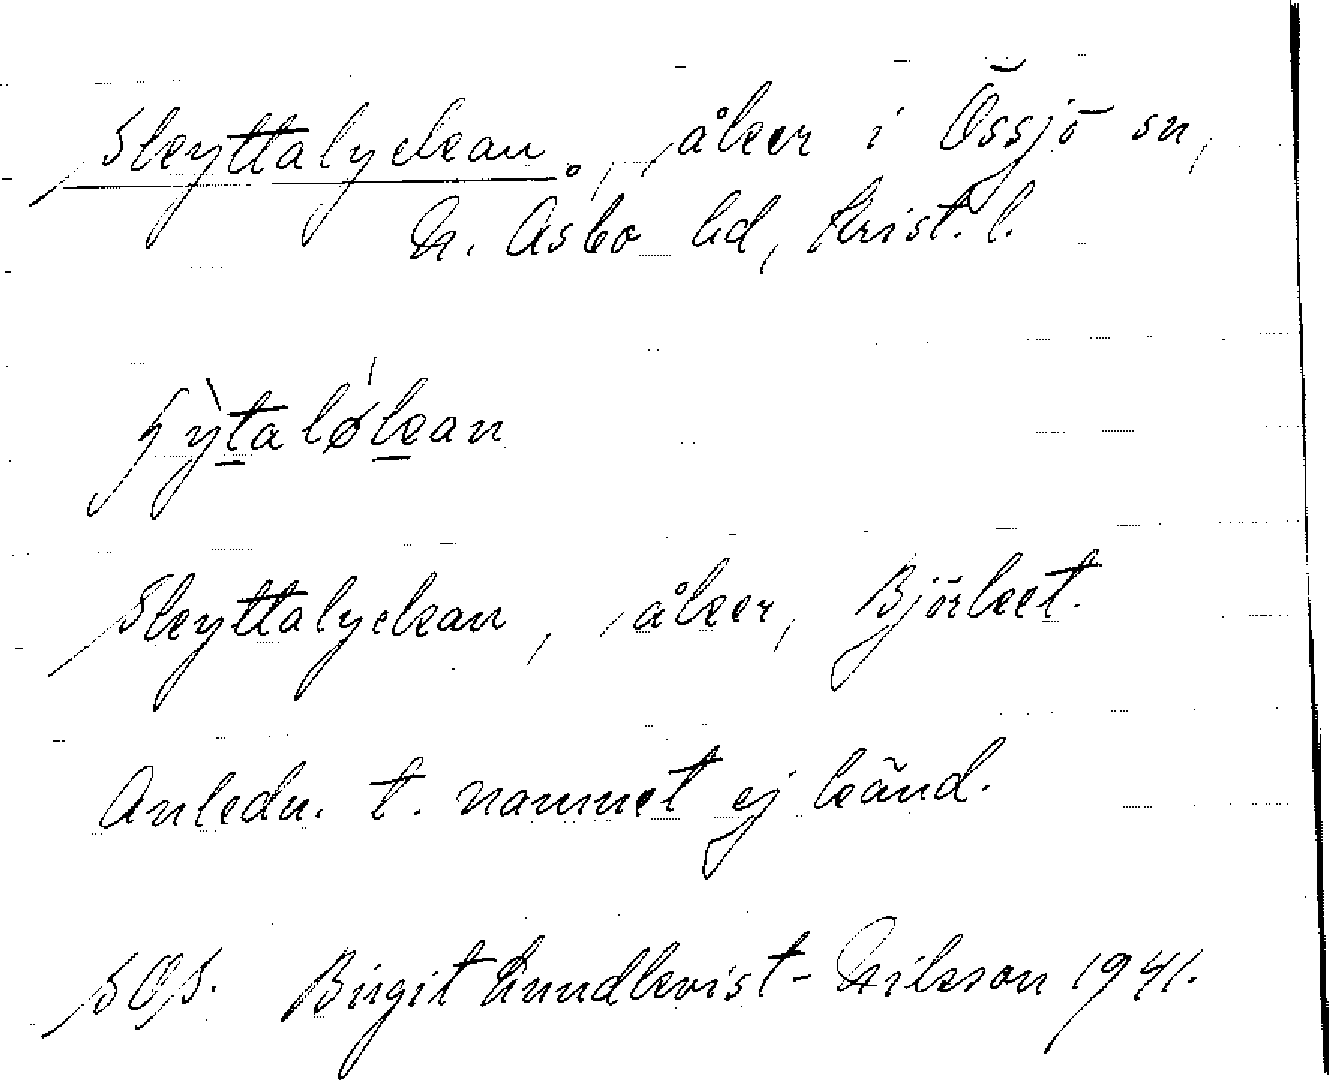 Skyttalyckan., åker i Össjö sn,
N. Åsbo hd, Krist. l.
ʃỳtalø̍kan
Skyttalyckan, åker, Björket.
Anledn. t. namnet ej känd.
SOS. Birgit Lundkvist-Nilsson 1941.